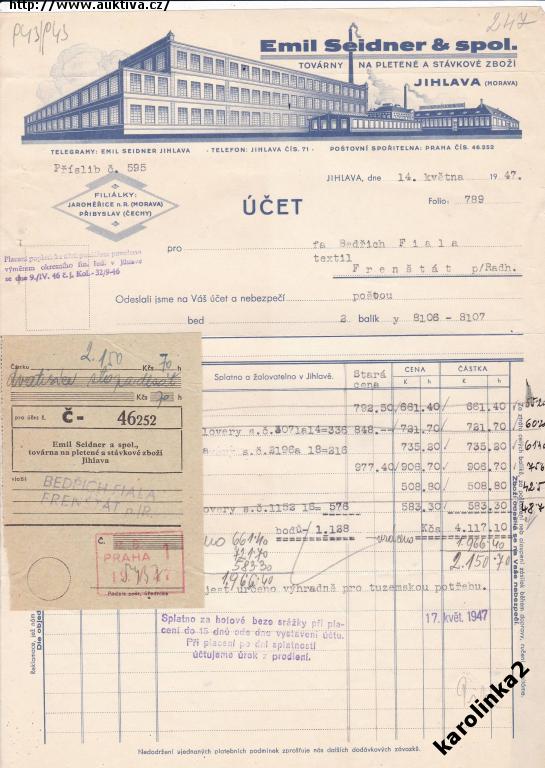 http://www.auktiva.cz/
P43/P43
247
Emil Seidner & spol.
TOVÁRNY NA PLETENÉ A STÁVKOVÉ ZBOŽÍ
JIHLAVA (MORAVA)
TELEGRAMY: EMIL SEIDNER JIHLAVA · TELEFON: JIHLAVA ČÍS. 71 · POŠTOVNÍ SPOŘITELNA: PRAHA ČÍS. 46.252
Příslib č. 595
JIHLAVA, dne 14. května 1947.
FILIÁLKY:
JAROMĚŘICE n. R. (MORAVA)
PŘIBYSLAV (ČECHY)
ÚČET
Folio: 789
pro fa Bedřich Fiala
textil
Frenštát p/Radh.
se dne 9./IV. 46 č. j. Kol.-32/9-46
Odeslali jsme na Váš účet a nebezpečí poštou
bed 2 balík y 8106 - 8107
2.150
Částka Kčs 70 h
Kčs 70 h
pro účet č. Č- 46252
Emil Seidner a spol.,
továrna na pletené a stávkové zboží
Jihlava
vložil
BEDŘICH FIALA
FRENŠTÁT p/R.
Č.
PRAHA 1
Podpis pošt. úředníka
Splatno a žalovatelno v Jihlavě.
Stará cena
CENA
K h
ČÁSTKA
K h
792.50 661.40 661.40
lovery s.č.3071a14=336 848.— 721.70 721.70
s.č.2196a 18=216 735.20 735.20
977.40 906.70 906.70
508.80 508.80
lovery s.č.1152 16= 576 583.30 583.30
bodů 1.128 Kčs 4.117.10
661.40
721.70
583.30
1.966.40
1.966.40
2.150.70
jest určeno výhradně pro tuzemskou potřebu.
17. květ. 1947
Splatno za hotové beze srážky při pla-
cení do 15 dnů ode dne vystavení účtu.
Při placení po dni splatnosti
účtujeme úrok z prodlení.
Zboží odesílá se na Vaše nebezpečí.
Nedodržení ujednaných platebních podmínek zprošťuje nás dalších dodávkových závazků.
karolinka2